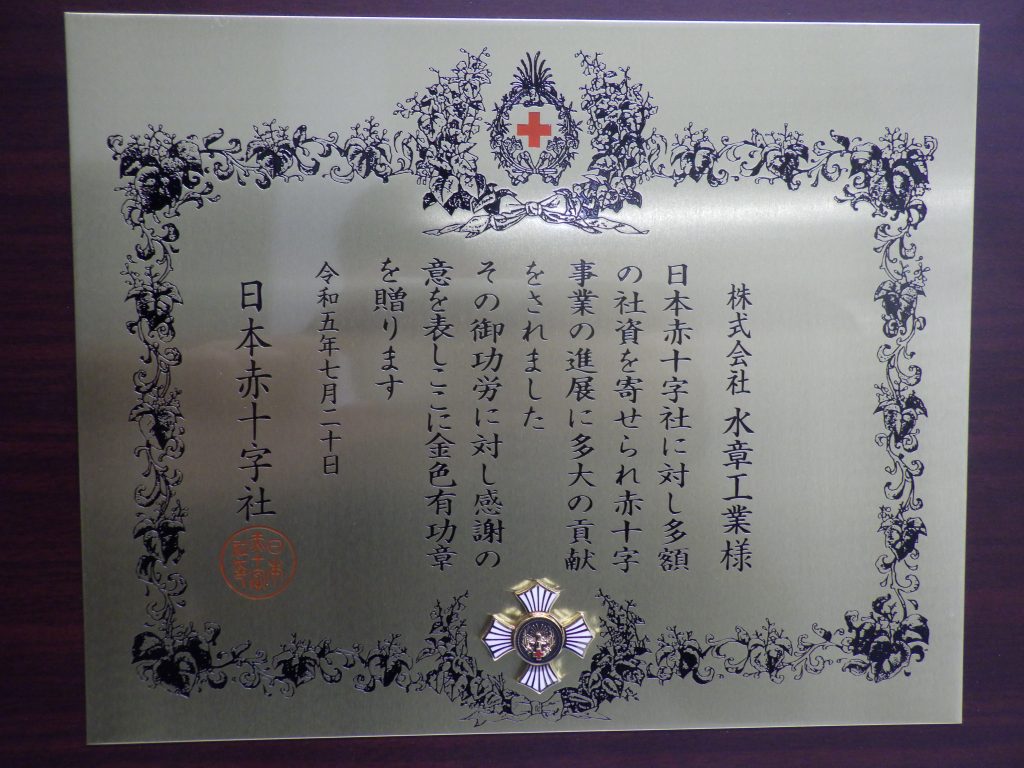 株式会社 水章工業様
日本赤十字社に対し多額
の社資を寄せられ赤十字
事業の進展に多大の貢献
をされました
その御功労に対し感謝の
意を表しここに金色有功章
を贈ります
令和五年七月二十日
日本赤十字社